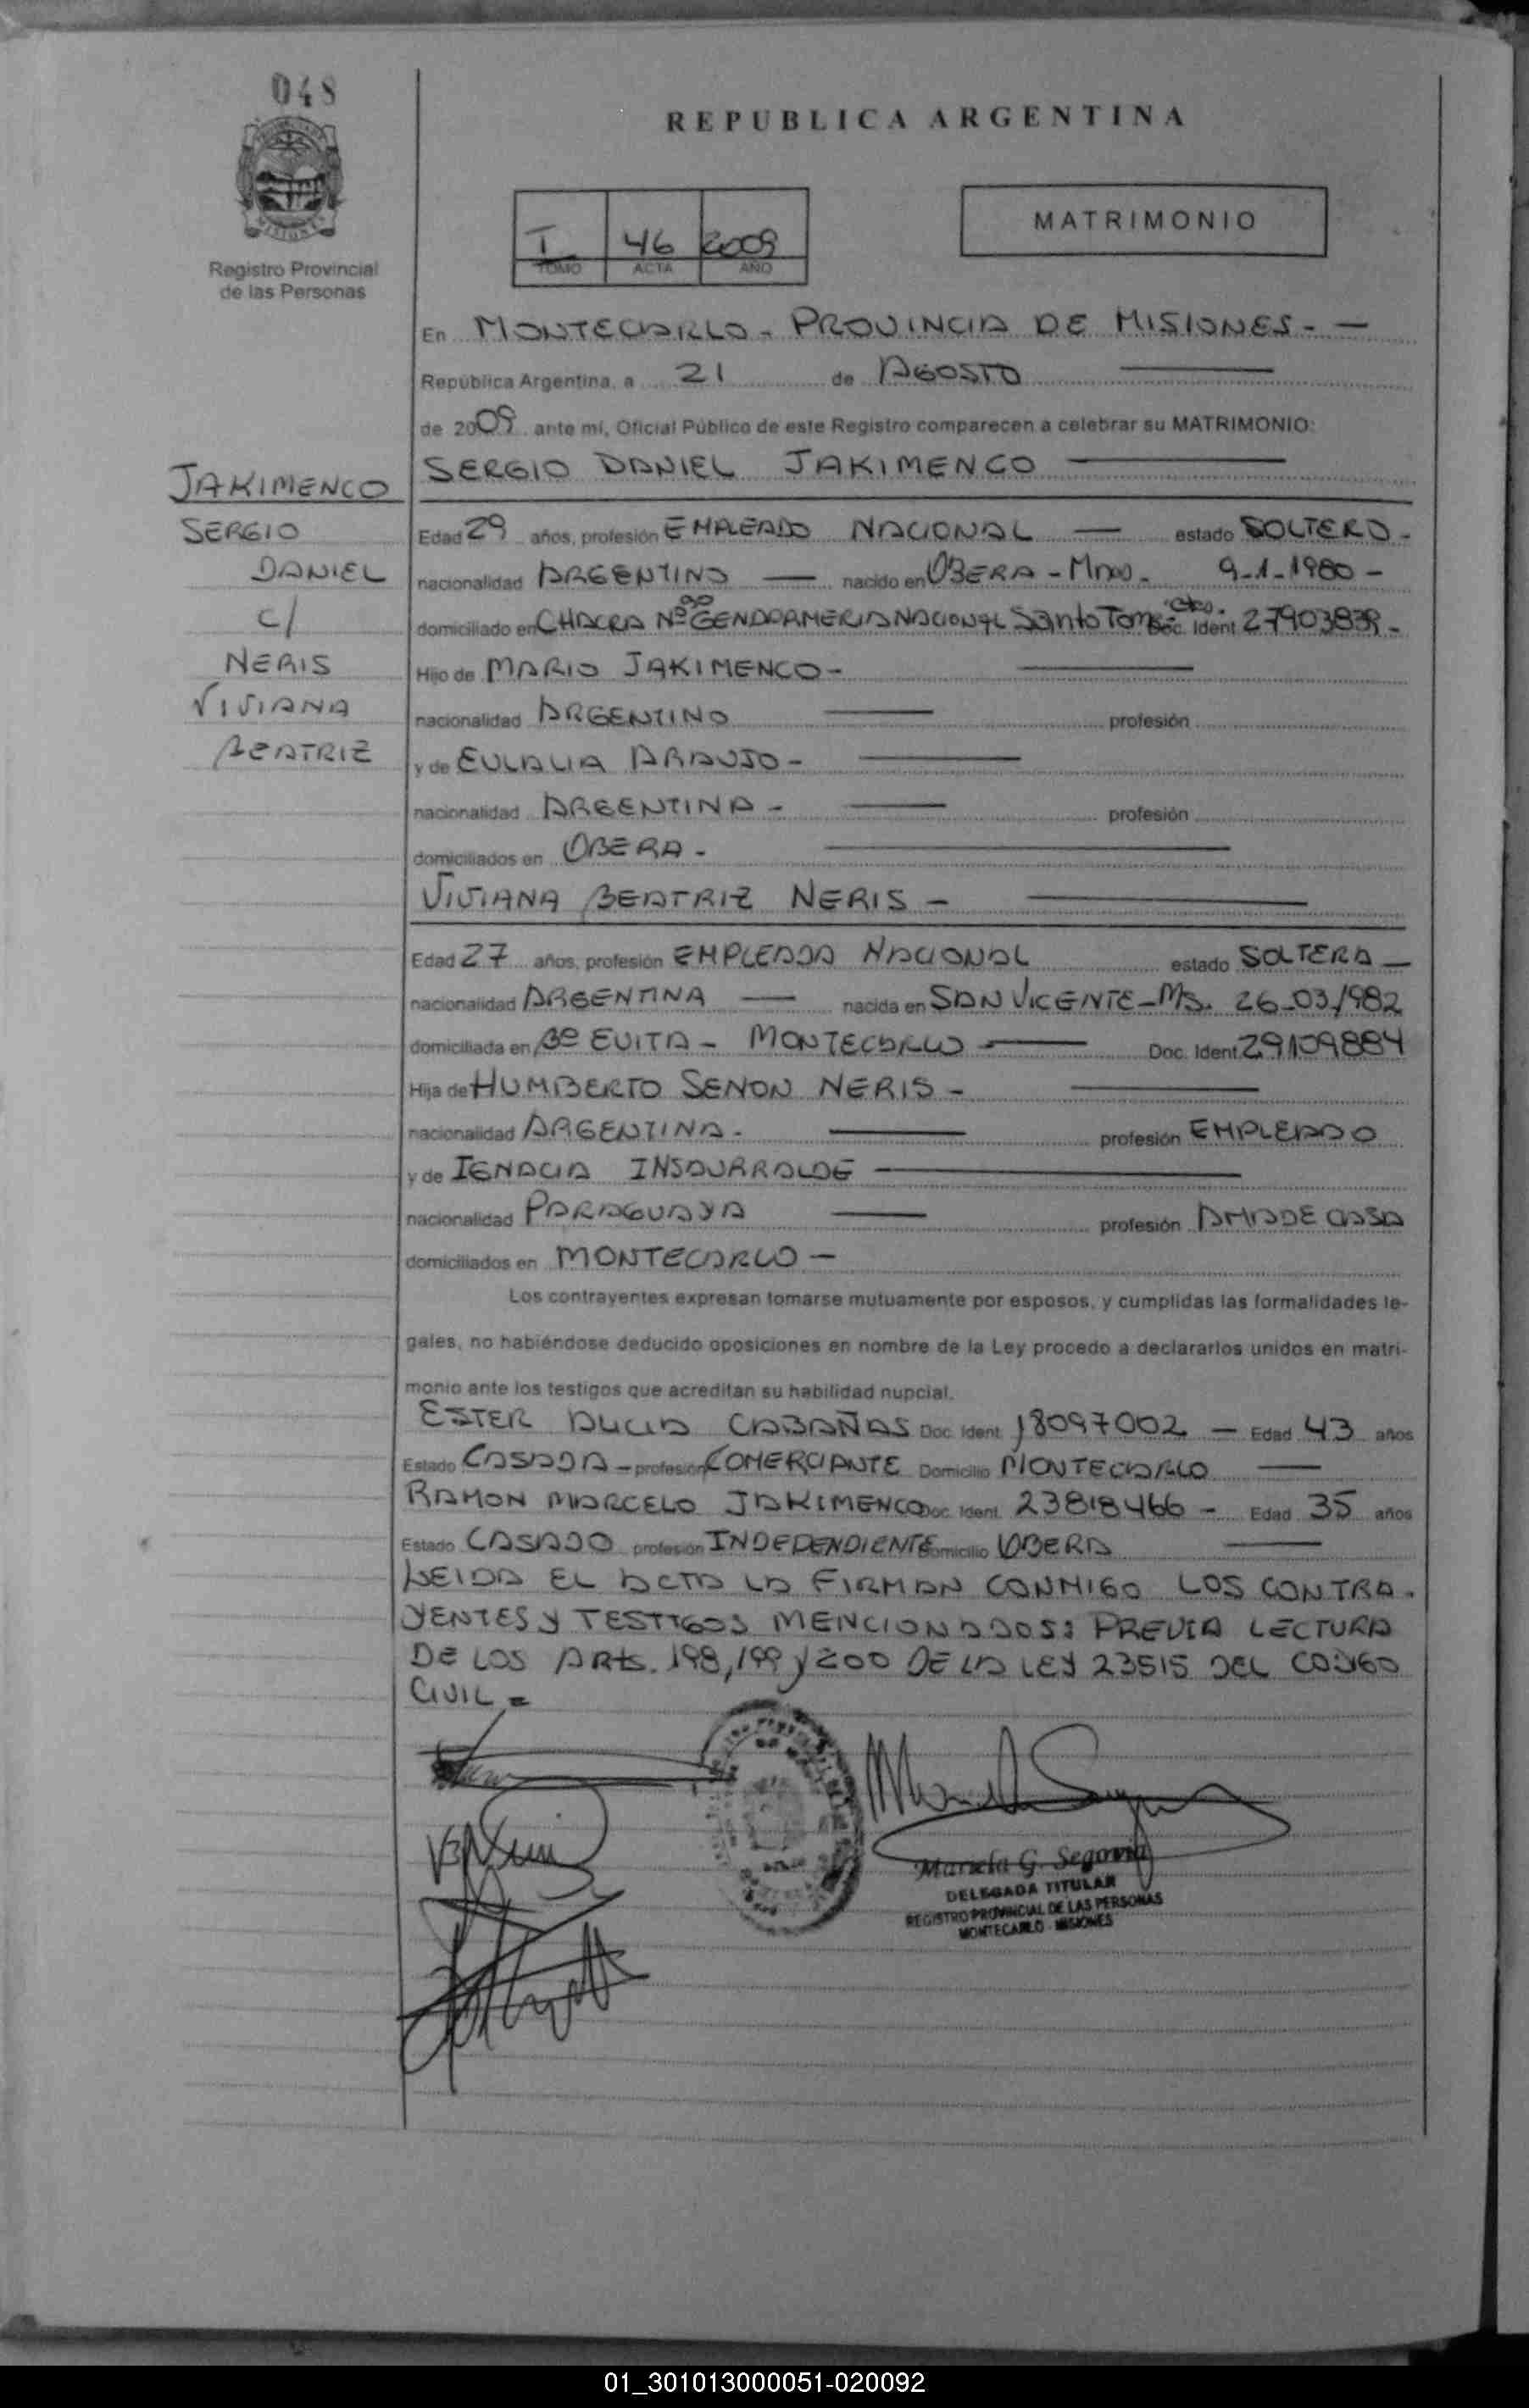 048
REPUBLICA ARGENTINA
MATRIMONIO
I 46 2009
TOMO ACTA AÑO
Registro Provincial
de las Personas
En MONTECARLO - PROVINCIA DE MISIONES - —
República Argentina, a 21 de AGOSTO —
de 2009 ante mí, Oficial Público de este Registro comparecen a celebrar su MATRIMONIO:
SERGIO DANIEL JAKIMENCO —
JAKIMENCO
SERGIO
DANIEL
c/
NERIS
VIVIANA
BEATRIZ
Edad 29 años, profesión EMPLEADO NACIONAL — estado SOLTERO -
nacionalidad ARGENTINO — nacido en OBERA - Mnes. 9-1-1980 -
domiciliado en CHACRA Nº GENDARMERIA NACIONAL Santo Tome Ctes. Doc. Ident. 27903839 -
Hijo de MARIO JAKIMENCO - —
nacionalidad ARGENTINO — profesión
y de EULALIA ARAUJO - —
nacionalidad ARGENTINA - — profesión
domiciliados en OBERA - —
VIVIANA BEATRIZ NERIS - —
Edad 27 años, profesión EMPLEADA NACIONAL estado SOLTERA —
nacionalidad ARGENTINA — nacida en SAN VICENTE - Ms. 26-03/982
domiciliada en Bº EVITA - MONTECARLO — Doc. Ident. 29109884
Hija de HUMBERTO SENON NERIS - —
nacionalidad ARGENTINA - — profesión EMPLEADO
y de IGNACIA INSAURRALDE —
nacionalidad PARAGUAYA — profesión AMA DE CASA
domiciliados en MONTECARLO —
Los contrayentes expresan tomarse mutuamente por esposos, y cumplidas las formalidades le-
gales, no habiéndose deducido oposiciones en nombre de la Ley procedo a declararlos unidos en matri-
monio ante los testigos que acreditan su habilidad nupcial.
ESTER ALICIA CABAÑAS Doc. Ident. 18097002 — Edad 43 años
Estado CASADA - profesión COMERCIANTE Domicilio MONTECARLO —
RAMON MARCELO JAKIMENCO Doc. Ident. 23818466 - Edad 35 años
Estado CASADO profesión INDEPENDIENTE Domicilio OBERA —
LEIDA EL ACTA LA FIRMAN CONMIGO LOS CONTRA-
YENTES Y TESTIGOS MENCIONADOS: PREVIA LECTURA
DE LOS ARts. 198, 199 y 200 DE LA LEY 23515 DEL CODIGO
CIVIL =
Mariela G. Segovia
DELEGADA TITULAR
REGISTRO PROVINCIAL DE LAS PERSONAS
MONTECARLO - MISIONES
01_301013000051-020092